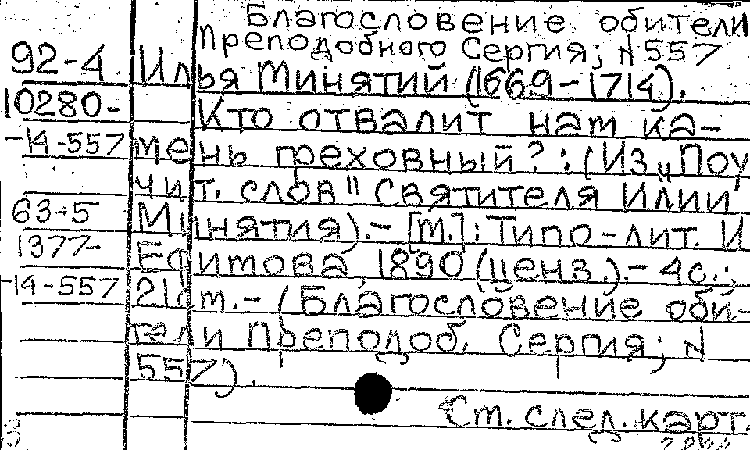 Благословение обители
Преподобного Сергия; N 557
92-4 Илья Минятий (1669-1714).
10280- Кто отвалит нам ка-
-14-557 мень греховный? : (Из „Поу
чит. слов" Святителя Илии
63-5 Минятия).- [М.]: Типо-лит. И
1377- Ефимова, 1890 (ценз.).- 4с.;
-14-557 21см.- (Благословение оби-
тели Преподоб. Сергия; N
557).
См. след. карт.